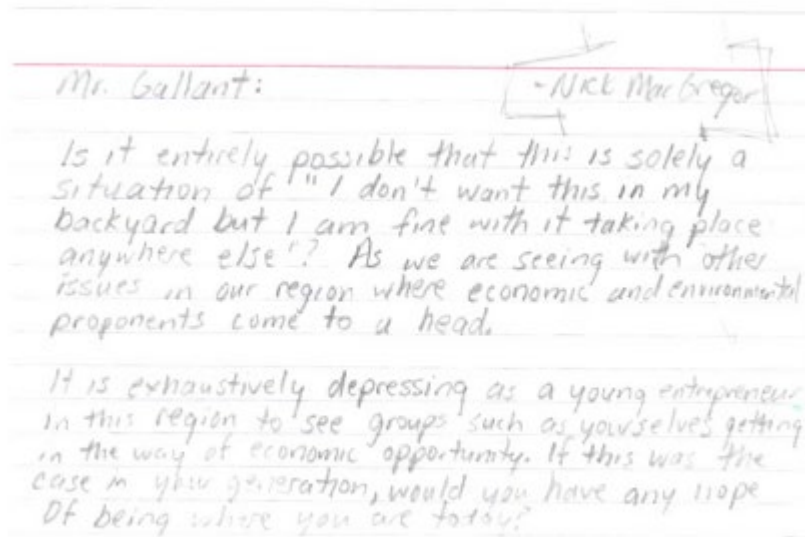 Mr. Gallant: -Nick MacGregor
Is it entirely possible that this is solely a
situation of "I don't want this in my
backyard but I am fine with it taking place
anywhere else"? As we are seeing with other
issues in our region where economic and environmental
proponents come to a head.
It is exhaustively depressing as a young entrepreneur
in this region to see groups such as yourselves getting
in the way of economic opportunity. If this was the
case in your generation, would you have any hope
Of being where you are today?